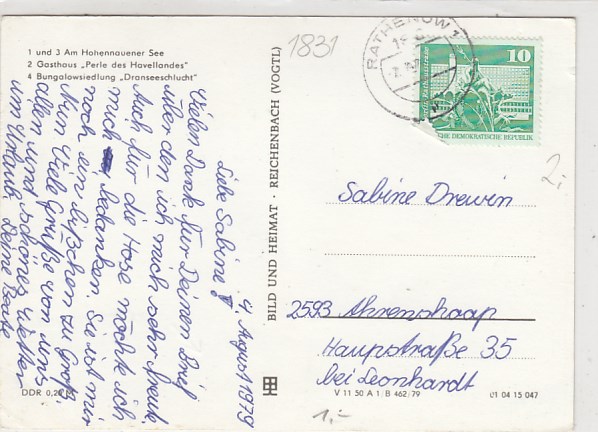 1 und 3 Am Hohennauener See
2 Gasthaus „Perle des Havellandes"
4 Bungalowsiedlung „Dranseeschlucht"
4. August 1979
Liebe Sabine!
Vielen Dank für Deinen Brief
über den ich mich sehr freute.
Auch für die Hose möchte ich
mich bedanken. Sie ist mir
noch ein bißchen zu groß.
Nun viele Grüße von uns
allen und schönes Wetter
im Urlaub Deine Beate
DDR
BILD UND HEIMAT · REICHENBACH (VOGTL)
1831
RATHENOW 1
10
DEMOKRATISCHE REPUBLIK
2,-
Sabine Drewin
2593 Ahrenshaap
Haupstraße 35
bei Leonhardt
V 11 50 A 1 B 462/79
01 04 15 047
1,-